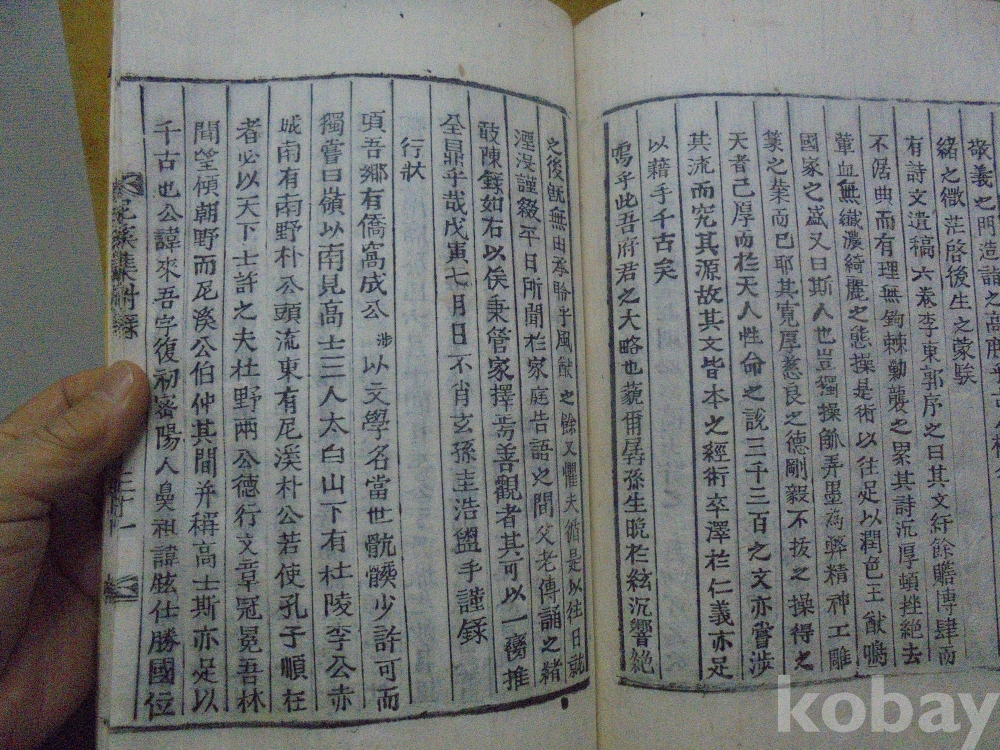 敬義之門造詣之高
緖之微茫啓後生之蒙騃
有詩文遺稿六卷李東郭序之曰其文紆餘贍博肆而
不倨典而有理無鉤棘勦襲之累其詩沉厚頓挫絶去
葷血無纎濃綺麗之態操是術以往足以潤色王猷鳴
國家之盛又曰斯人也豈獨操觚弄墨爲弊精神工雕
篆之業而已耶其寬厚慈良之德剛毅不拔之操得之
天者已厚而於天人性命之說三千三百之文亦嘗涉
其流而究其源故其文皆本之經術卒澤於仁義亦足
以藉手千古矣
嗚乎此吾府君之大略也藐爾孱孫生晩於絃沉響絶
之後旣無由承聆乎風猷之餘又懼夫循是以往日就
湮沒謹綴平日所聞於家庭告語之間父老傳誦之緖
敢陳錄如右以俟秉管家擇焉善觀者其可以一臠推
全鼎乎哉戊寅七月日不肖玄孫圭浩盥手謹錄
行狀
頃吾鄕有僑窩成公涉以文學名當世骯髒少許可而
獨嘗曰嶺以南見高士三人太白山下有杜陵李公赤
城南有南野朴公頭流東有尼溪朴公若使孔子順在
者必以天下士許之夫杜野兩公德行文章冠冕吾林
間望傾朝野而尼溪公伯仲其間并稱高士斯亦足以
千古也公諱來吾字復初密陽人鼻祖諱鉉仕勝國位
尼溪集附錄
kobay